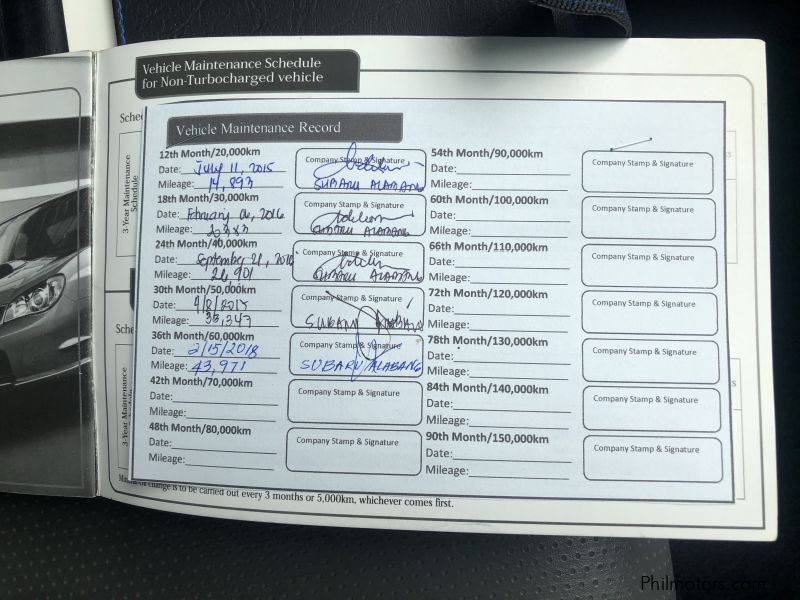 Vehicle Maintenance Schedule
for Non-Turbocharged vehicle
Sche
3-Year Maintenance
Schedule
Vehicle Maintenance Record
12th Month/20,000km
Date: July 11, 2015
Mileage: 14,893
Company Stamp & Signature
SUBARU ALABANG
18th Month/30,000km
Date: February 06, 2016
Mileage:
Company Stamp & Signature
SUBARU ALABANG
24th Month/40,000km
Date: September 21, 2016
Mileage:
Company Stamp & Signature
SUBARU ALABANG
30th Month/50,000km
Date: 9/8/2017
Mileage: 35,347
Company Stamp & Signature
SUBARU ALABANG
36th Month/60,000km
Date: 2/15/2018
Mileage: 43,971
Company Stamp & Signature
SUBARU ALABANG
42th Month/70,000km
Date:
Mileage:
Company Stamp & Signature
48th Month/80,000km
Date:
Mileage:
Company Stamp & Signature
54th Month/90,000km
Date:
Mileage:
Company Stamp & Signature
60th Month/100,000km
Date:
Mileage:
Company Stamp & Signature
66th Month/110,000km
Date:
Mileage:
Company Stamp & Signature
72th Month/120,000km
Date:
Mileage:
Company Stamp & Signature
78th Month/130,000km
Date:
Mileage:
Company Stamp & Signature
84th Month/140,000km
Date:
Mileage:
Company Stamp & Signature
90th Month/150,000km
Date:
Mileage:
Company Stamp & Signature
Sche
3-Year Maintenance
change is to be carried out every 3 months or 5,000km, whichever comes first.
Philmotors.com